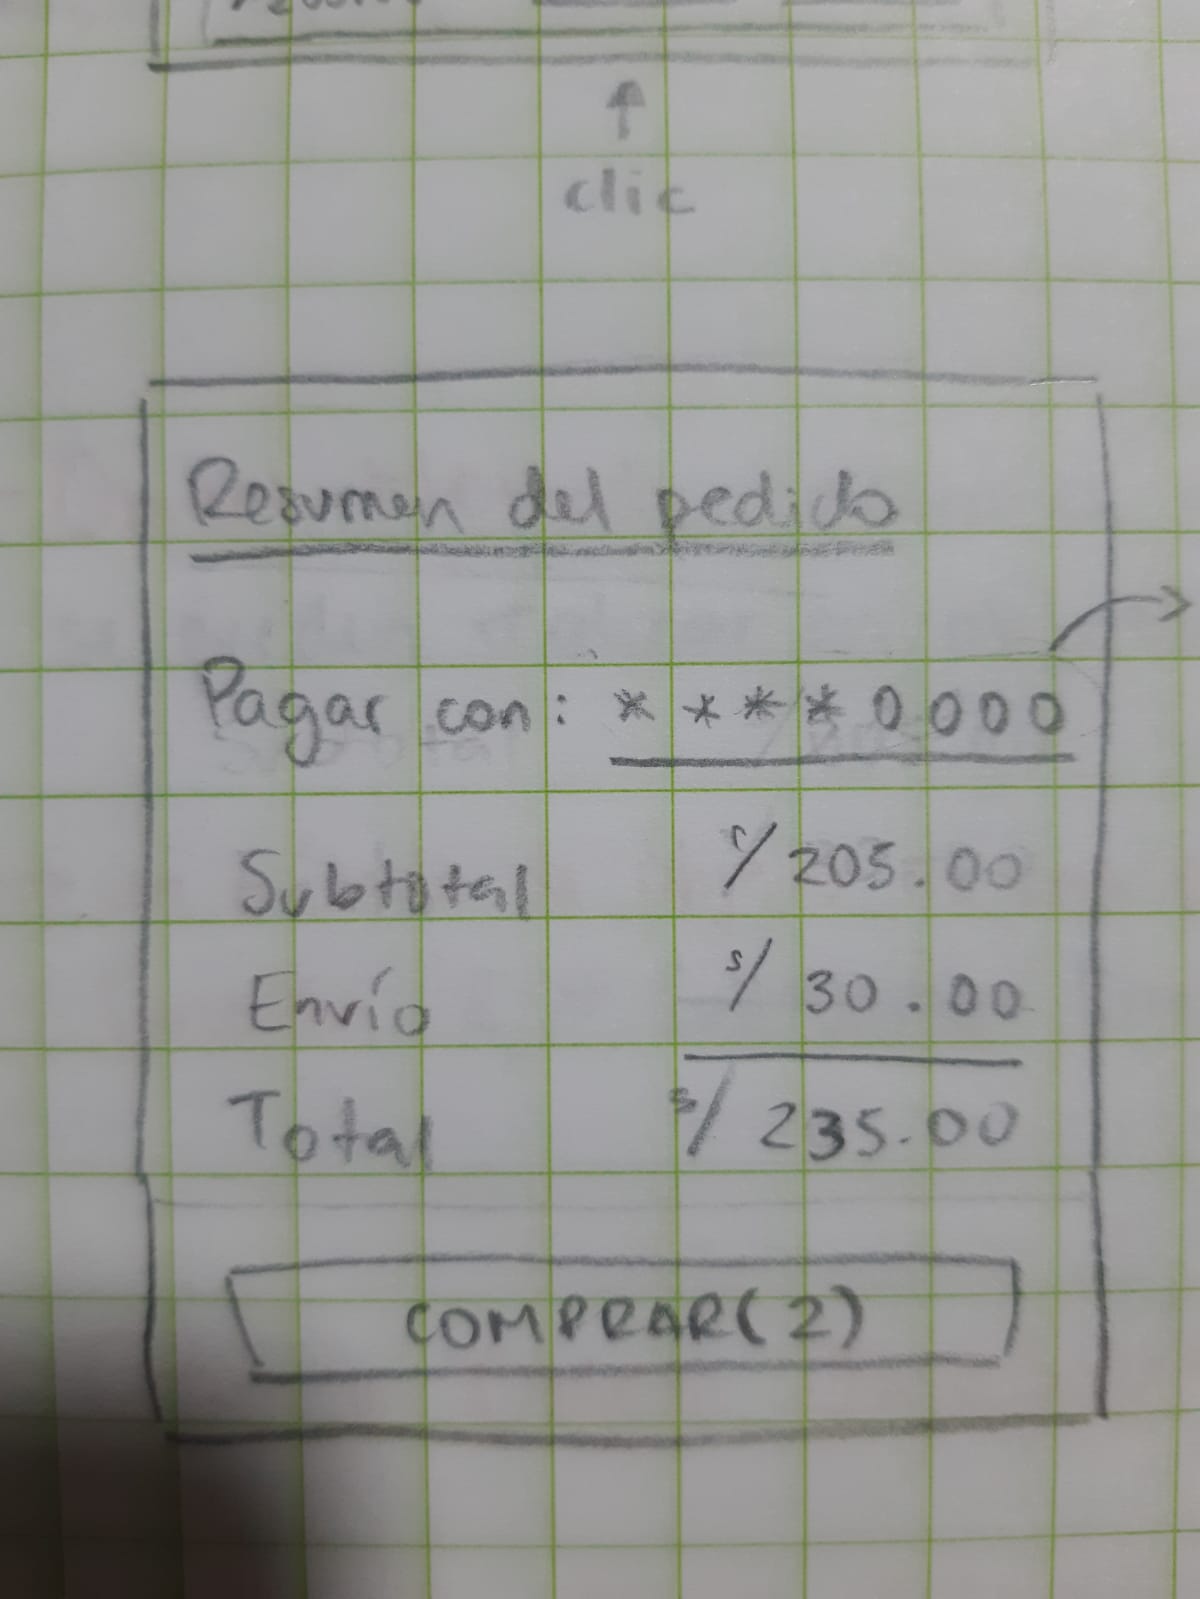 clic
Resumen del pedido
Pagar con: ****0000
Subtotal S/ 205.00
Envío S/ 30.00
Total S/ 235.00
COMPRAR(2)